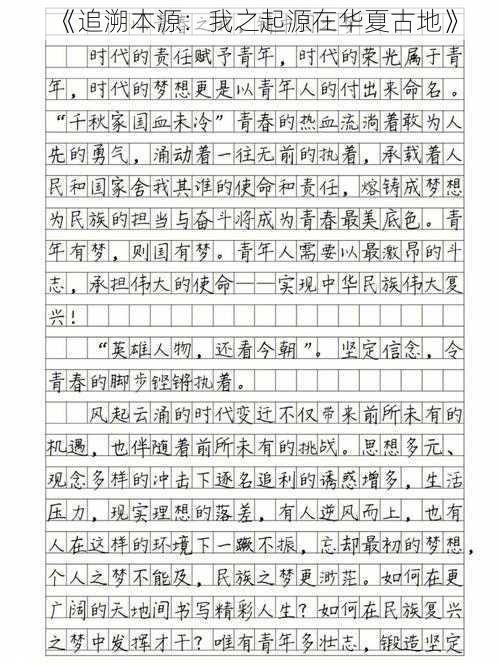 《追溯本源：我之起源在华夏古地》
时代的责任赋予青年，时代的荣光属于青
年，时代的梦想更是以青年人的付出来命名。
“千秋家国血未冷”青春的热血流淌着敢为人
先的勇气，涌动着一往无前的执着，承载着人
民和国家舍我其谁的使命和责任，熔铸成梦想
为民族的担当与奋斗将成为青春最美底色。青
年有梦，则国有梦。青年人需要以最激昂的斗
志，承担伟大的使命——实现中华民族伟大复
兴！
“英雄人物，还看今朝”。坚定信念，令
青春的脚步铿锵执着。
风起云涌的时代变迁不仅带来前所未有的
机遇，也伴随着前所未有的挑战。思想多元、
观念多样的冲击下逐名追利的诱惑增多，生活
压力，现实理想的落差，有人逆风而上，也有
人在这样的环境下一蹶不振，忘却最初的梦想，
个人之梦不能及，民族之梦更渺茫。如何在更
广阔的天地间书写精彩人生？如何在民族复兴
之梦中发挥才干？唯有青年多壮志，锻造坚定